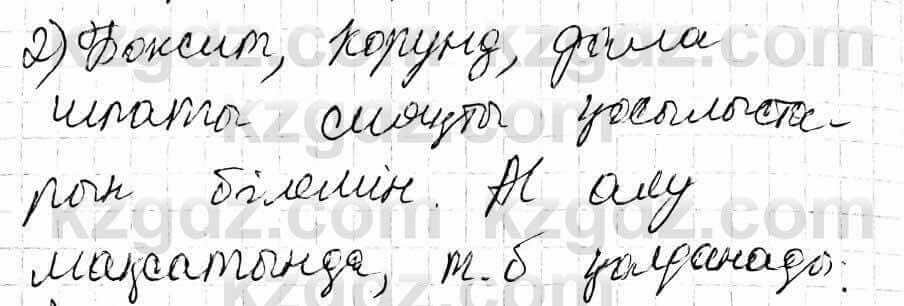 2) Боксит, корунд, дала
шпаты сияқты қосылыста-
рын білемін. Al алу
мақсатында, т.б қолданады.